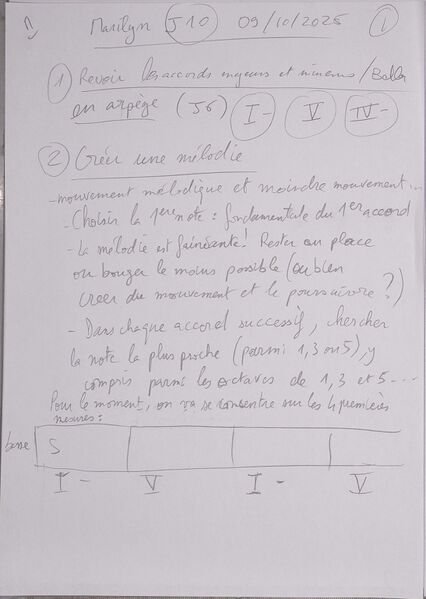 Marilyn J10 09/10/2025 1
1 Revoir les accords majeurs et mineurs /
en arpège (J6) I- V IV-
2 Créer une mélodie
- mouvement mélodique et moindre mouvement...
- Choisir la 1ère note : fondamentale du 1er accord
- La mélodie est fainéante ! Rester au place
ou bouger le moins possible (ou bien
creer du mouvement et le poursuivre ?)
- Dans chaque accord successif, chercher
la note la plus proche (parmi 1, 3 ou 5), y
compris parmi les octaves de 1, 3 et 5 ...
Pour le moment, on va se consentre sur les 4 premières
mesures :
basse S
I- V I- V